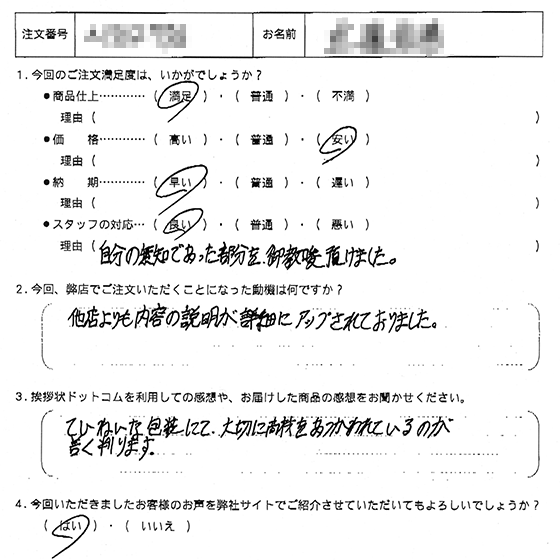 注文番号 お名前
1.今回のご注文満足度は、いかがでしょうか?
●商品仕上…………( 満足 )・( 普通 )・( 不満 )
理由( )
●価 格…………( 高い )・( 普通 )・( 安い )
理由( )
●納 期…………( 早い )・( 普通 )・( 遅い )
理由( )
●スタッフの対応…( 良い )・( 普通 )・( 悪い )
理由( 自分の無知であった部分を、御教唆頂けました。 )
2.今回、弊店でご注文いただくことになった動機は何ですか?
他店よりも内容の説明が詳細にアップされておりました。
3.挨拶状ドットコムを利用しての感想や、お届けした商品の感想をお聞かせください。
ていねいな包装にて、大切に商材をあつかわれているのが
苦く判ります。
4.今回いただきましたお客様のお声を弊社サイトでご紹介させていただいてもよろしいでしょうか?
( はい )・( いいえ )